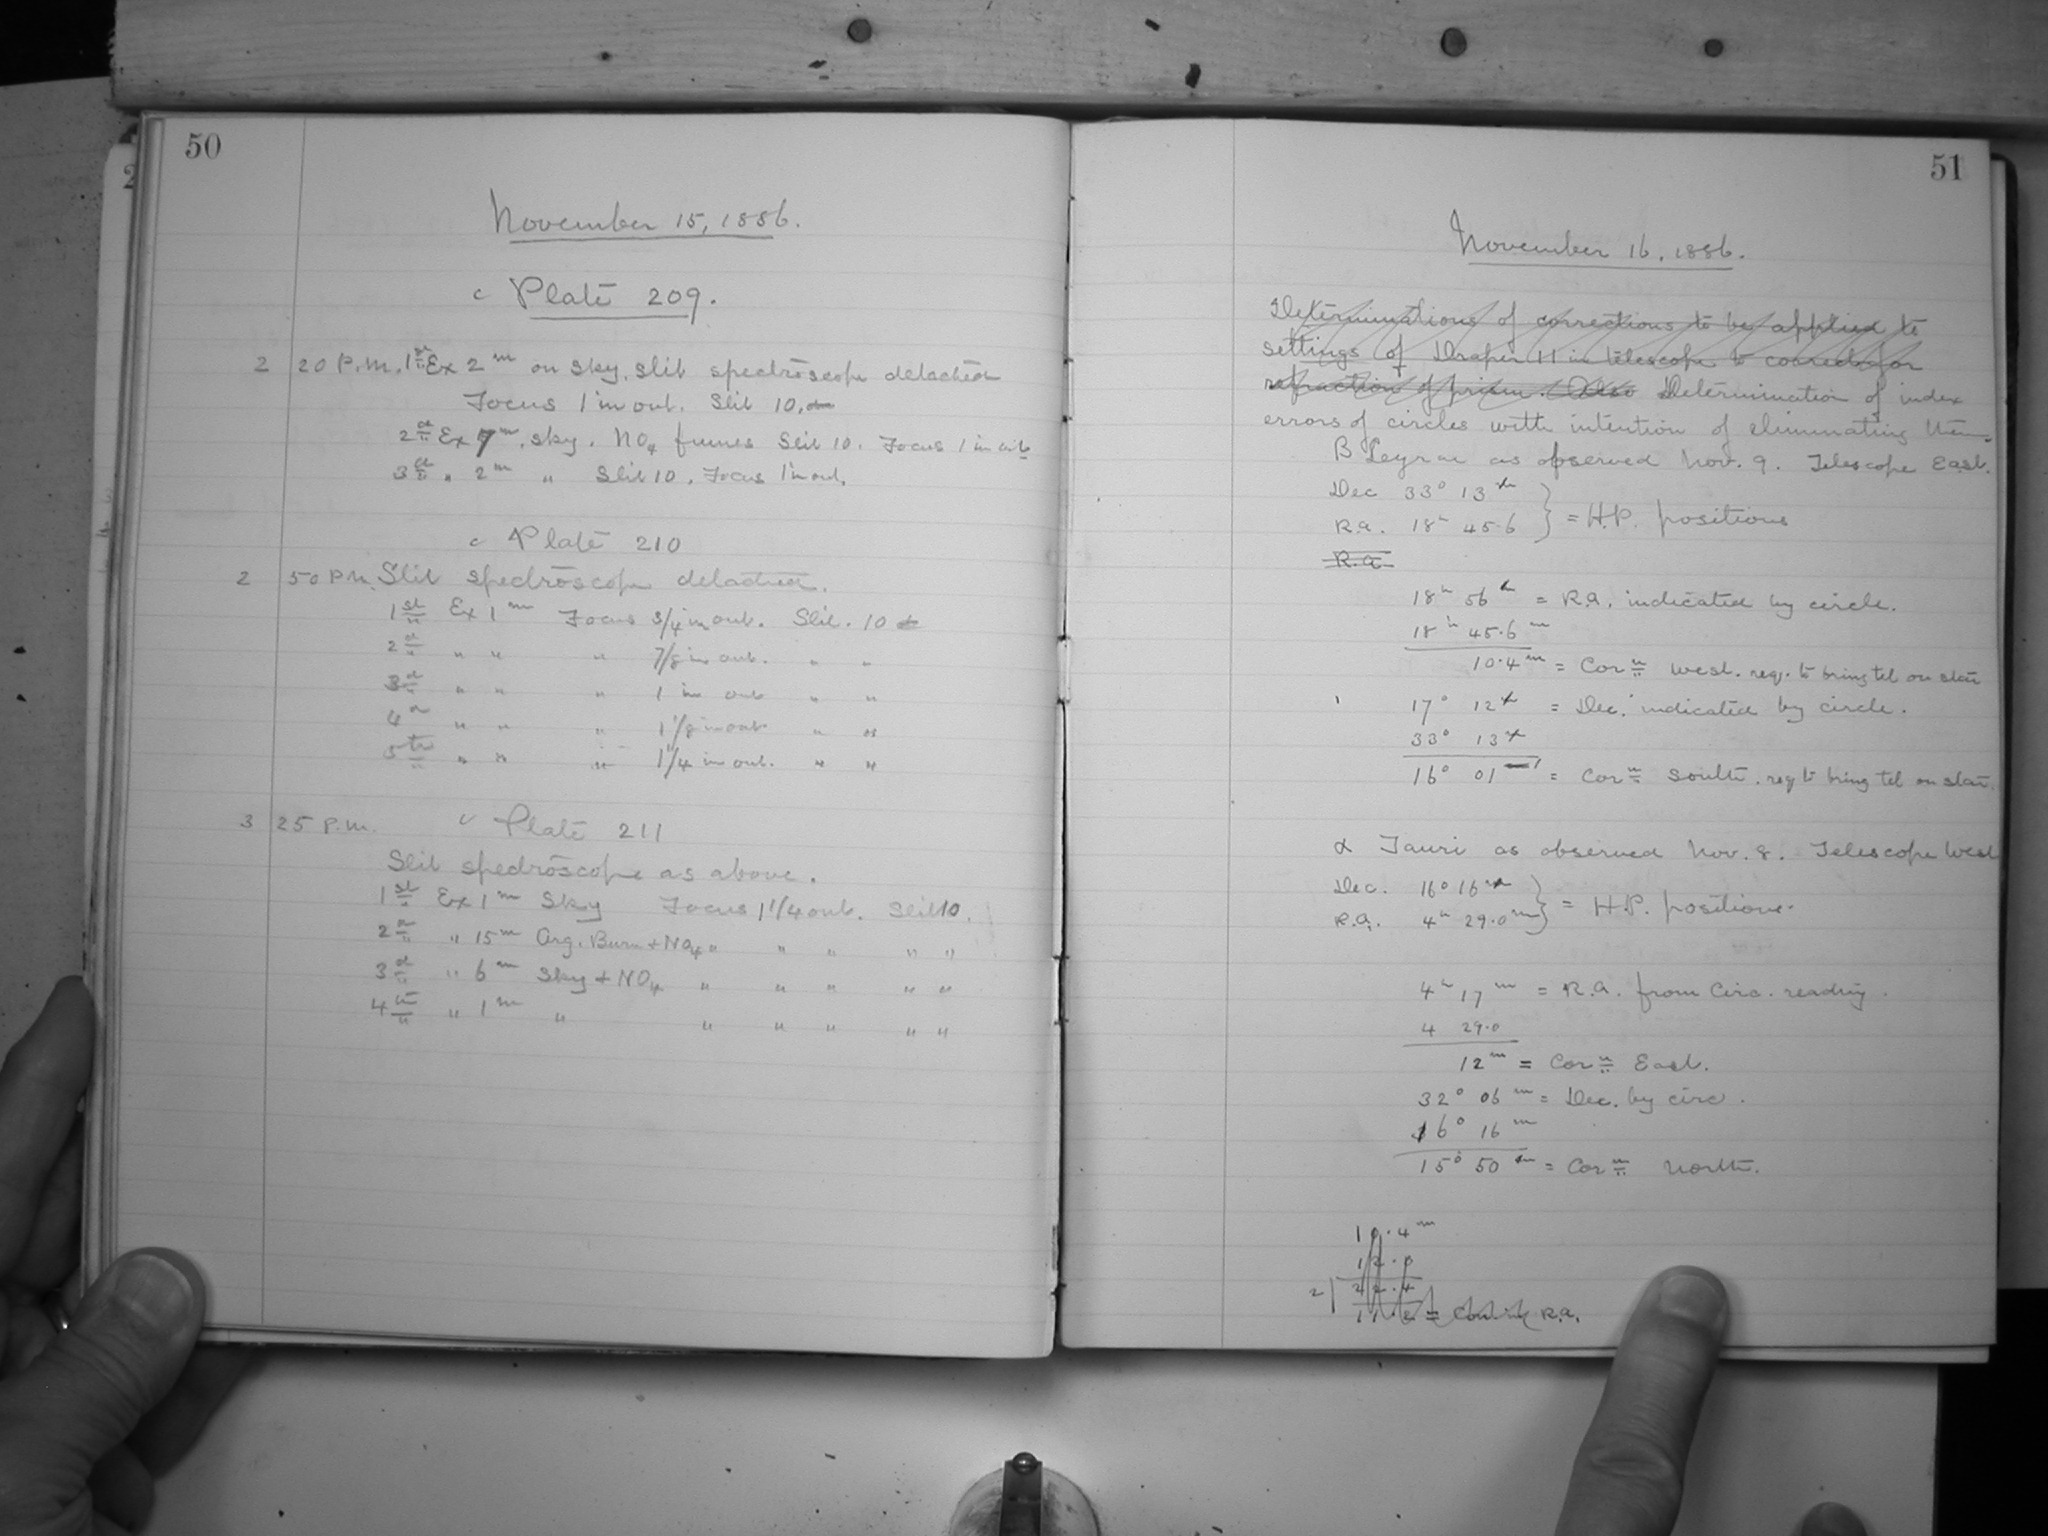 50
November 15, 1886.
c Plate 209.
2 20 P.M. 1st Ex 2m on sky. slit spectroscope detached
Focus 1 in out. Slit 10.
2d Ex 7m. sky. NO4 fumes Slit 10. Focus 1 in out
3d " 2m " Slit 10. Focus 1 in out.
c Plate 210
2 50 P.M. Slit spectroscope detached.
1st Ex 1m Focus 3/4 in out. Slit. 10
2d " " " 7/8 in out. " "
3d " " " 1 in out " "
4th " " " 1 1/8 in out " "
5th " " " 1 1/4 in out. " "
3 25 P.M. c Plate 211
Slit spectroscope as above.
1st Ex 1m Sky Focus 1 1/4 out. Slit 10.
2d " 15m Arg. Burn + NO4 " " " " "
3d " 6m Sky + NO4 " " " " "
4th " 1m " " " " " "
51
November 16, 1886.
Determinations of corrections to be applied to
settings of Draper 11 in telescope to correct for
refraction of prism. Also Determination of index
errors of circles with intention of eliminating them.
B Leyrae as observed Nov. 9. Telescope East.
Dec 33° 13m
R.A. 18h 45.6 } = H.P. positions
R.A.
18h 56m = R.A. indicated by circle.
18h 45.6m
10.4m = Corn west. req. to bring tel on star
17° 12m = Dec. indicated by circle.
33° 13m
16° 01' = Corn South. req to bring tel on star.
α Tauri as observed Nov. 8. Telescope West
Dec. 16° 16m
R.A. 4h 29.0m } = H.P. positions.
4h 17m = R.A. from Circ. reading.
4 29.0
12m = Corn East.
32° 06m = Dec. by circ.
16° 16m
15° 50m = Corn North.
10.4m
12.0
2 | 22.4
11.2 = Corn in R.A.